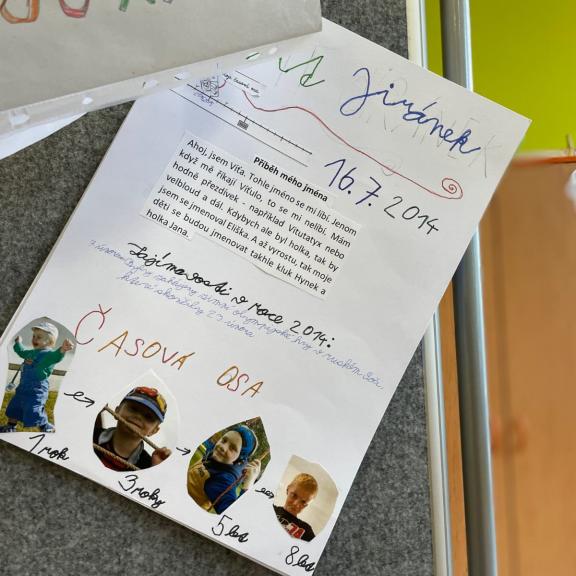 Jiránek
16.7.2014
Příběh mého jména
Ahoj, jsem Víťa. Tohle jméno se mi líbí. Jenom
když mě říkají Víťulo, to se mi nelíbí. Mám
hodně přezdívek - například Vítutatyx nebo
velbloud a dál. Kdybych ale byl holka, tak by
jsem se jmenoval Eliška. A až vyrostu, tak moje
děti se budou jmenovat takhle kluk Hynek a
holka Jana.
Zajímavosti v roce 2014:
7. února byly zahájeny zimní olympijské hry v ruském Soči
které skončily 23. února
ČASOVÁ OSA
1 rok
3 roky
5 let
8 let